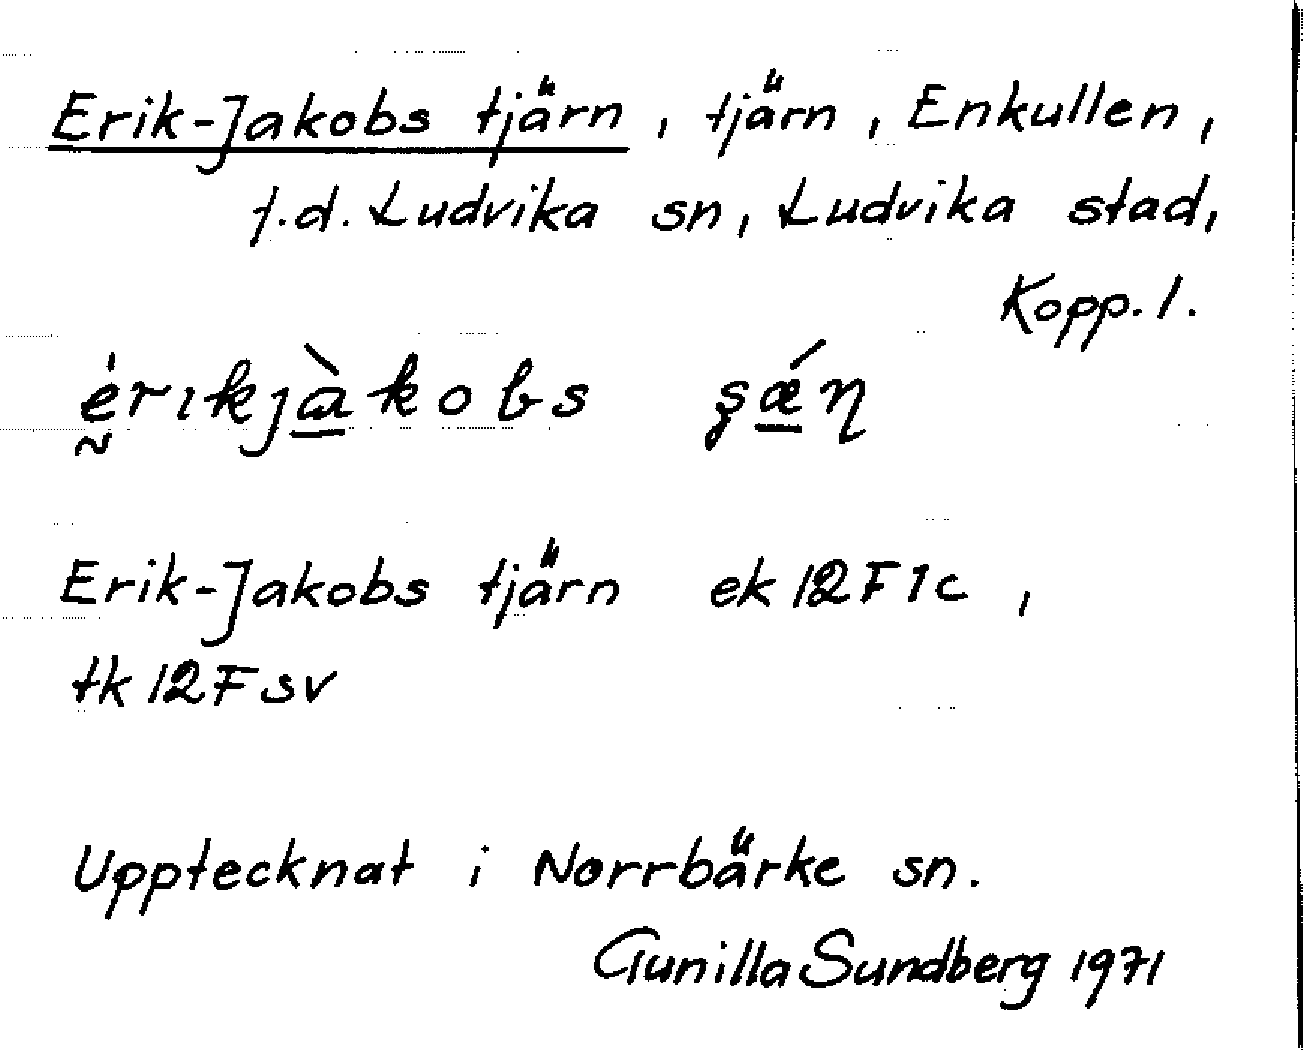 Erik-Jakobs tjärn, tjärn, Enkullen,
f.d. Ludvika sn, Ludvika stad,
Kopp. l.
ḛ̀rıkjà̲kobs ʂǽ̲ɳ
Erik-Jakobs tjärn ek 12F1c,
tk 12F sv
Upptecknat i Norrbärke sn.
Gunilla Sundberg 1971